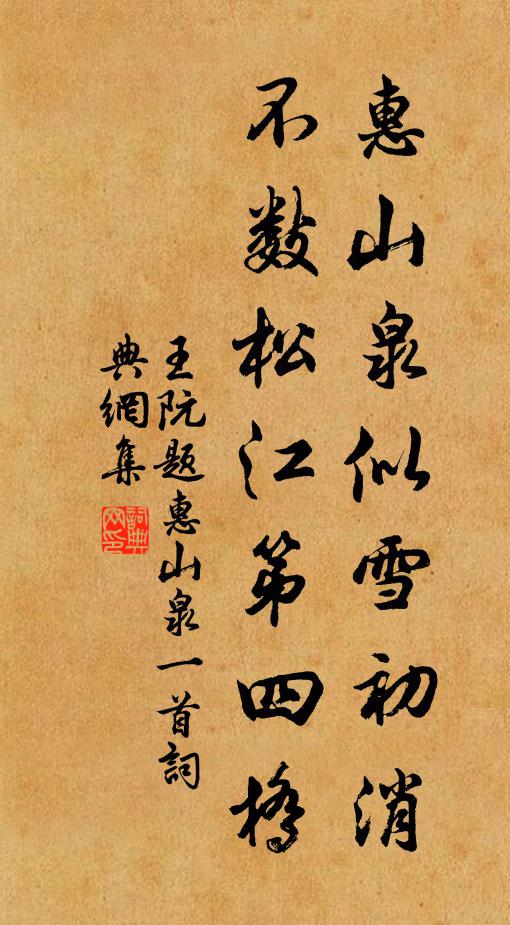 惠山泉似雪初消
不数松江第四橋
王阮題惠山泉一首詞
典網集
詞典網印